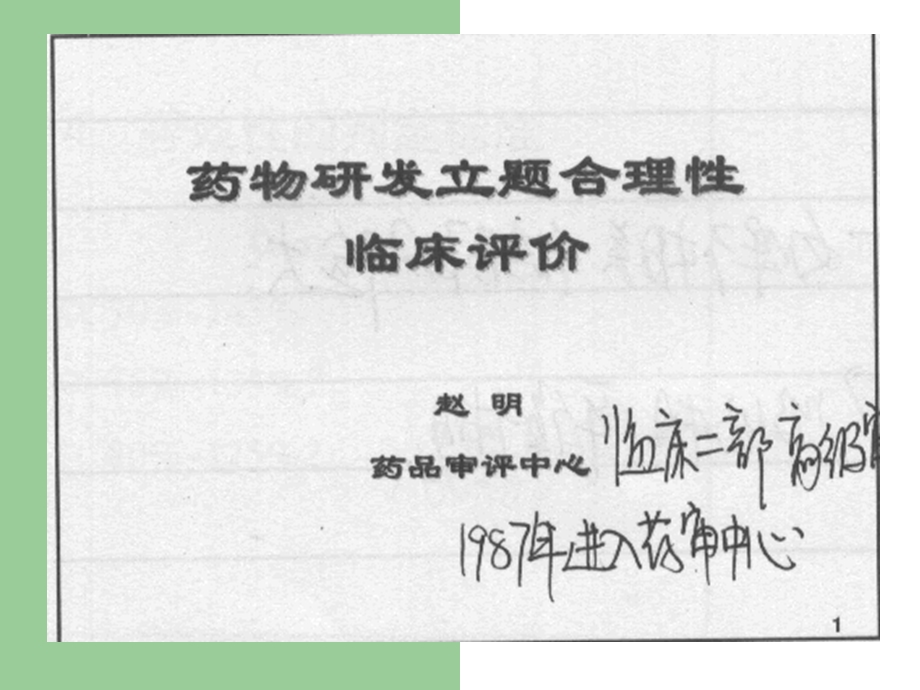 药物研发立题合理性
临床评价
赵 明
药品审评中心 临床二部高级审
1987年进入药审中心
1